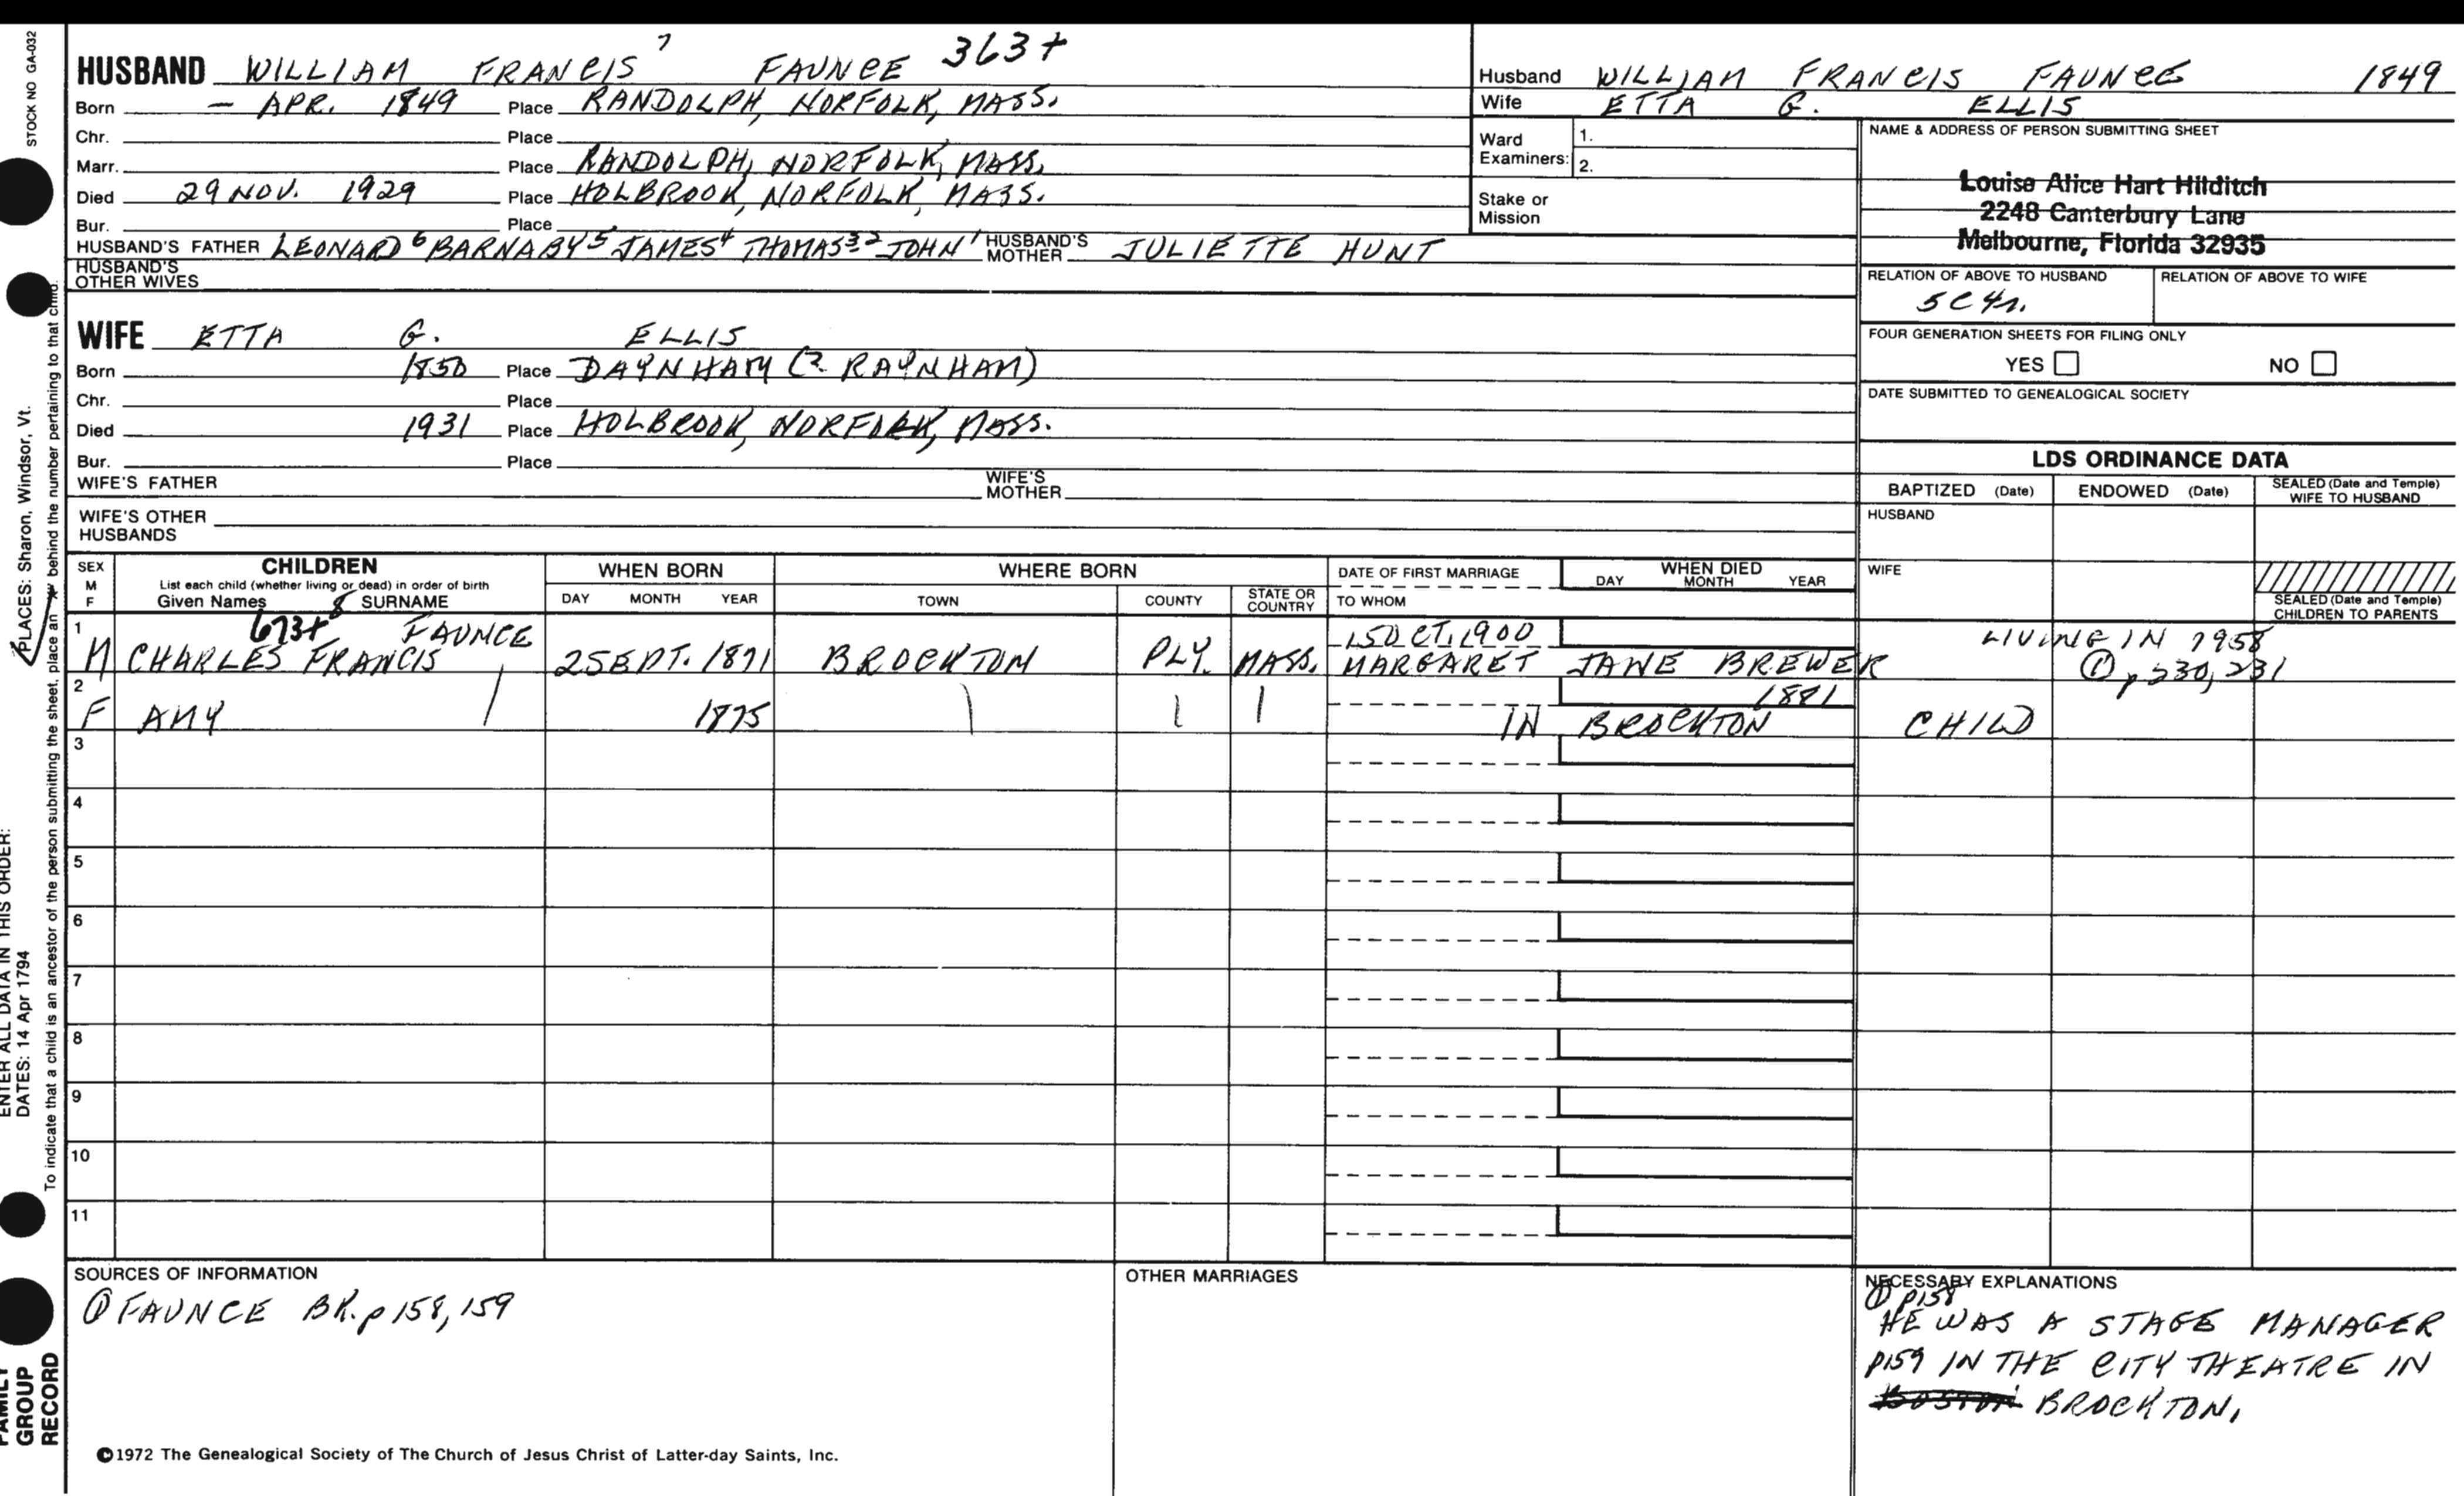 STOCK NO GA-032
HUSBAND WILLIAM FRANCIS 7 FAUNCE 363+
Born — APR. 1849 Place RANDOLPH, NORFOLK, MASS.
Chr. Place
Marr. Place RANDOLPH, NORFOLK, MASS.
Died 29 NOV. 1929 Place HOLBROOK, NORFOLK, MASS.
Bur. Place
HUSBAND'S FATHER LEONARD 6 BARNABY 5 JAMES 4 THOMAS 3 2 JOHN 1 HUSBAND'S MOTHER JULIETTE HUNT
HUSBAND'S OTHER WIVES
WIFE ETTA G. ELLIS
Born 1850 Place DAYNHAM (? RAYNHAM)
Chr. Place
Died 1931 Place HOLBROOK, NORFOLK, MASS.
Bur. Place
WIFE'S FATHER WIFE'S MOTHER
WIFE'S OTHER HUSBANDS
Husband WILLIAM FRANCIS FAUNCE 1849
Wife ETTA G. ELLIS
Ward Examiners: 1.
2.
Stake or Mission
NAME & ADDRESS OF PERSON SUBMITTING SHEET
Louise Alice Hart Hilditch
2248 Canterbury Lane
Melbourne, Florida 32935
RELATION OF ABOVE TO HUSBAND RELATION OF ABOVE TO WIFE
5C4r.
FOUR GENERATION SHEETS FOR FILING ONLY
YES NO
DATE SUBMITTED TO GENEALOGICAL SOCIETY
LDS ORDINANCE DATA
BAPTIZED (Date) ENDOWED (Date) SEALED (Date and Temple) WIFE TO HUSBAND
HUSBAND
WIFE
SEALED (Date and Temple) CHILDREN TO PARENTS
SEX M F CHILDREN WHEN BORN WHERE BORN DATE OF FIRST MARRIAGE WHEN DIED
List each child (whether living or dead) in order of birth
Given Names 8 SURNAME DAY MONTH YEAR TOWN COUNTY STATE OR COUNTRY TO WHOM DAY MONTH YEAR
1 673+ FAUNCE 15 OCT. 1900 LIVING IN 1958
M CHARLES FRANCIS 2 SEPT. 1871 BROCKTON PLY. MASS. MARGARET JANE BREWER ① p 230, 231
2 1881
F AMY 1875 IN BROCKTON CHILD
3
4
5
6
7
8
9
10
11
SOURCES OF INFORMATION
① FAUNCE BK. p 158, 159
OTHER MARRIAGES
NECESSARY EXPLANATIONS
① P158
HE WAS A STAGE MANAGER
P159 IN THE CITY THEATRE IN
BOSTON BROCKTON.
©1972 The Genealogical Society of The Church of Jesus Christ of Latter-day Saints, Inc.
PLACES: Sharon, Windsor, Vt.
ENTER ALL DATA IN THIS ORDER:
DATES: 14 Apr 1794
To indicate that a child is an ancestor of the person submitting the sheet, place an behind the number pertaining to that child.
FAMILY GROUP RECORD